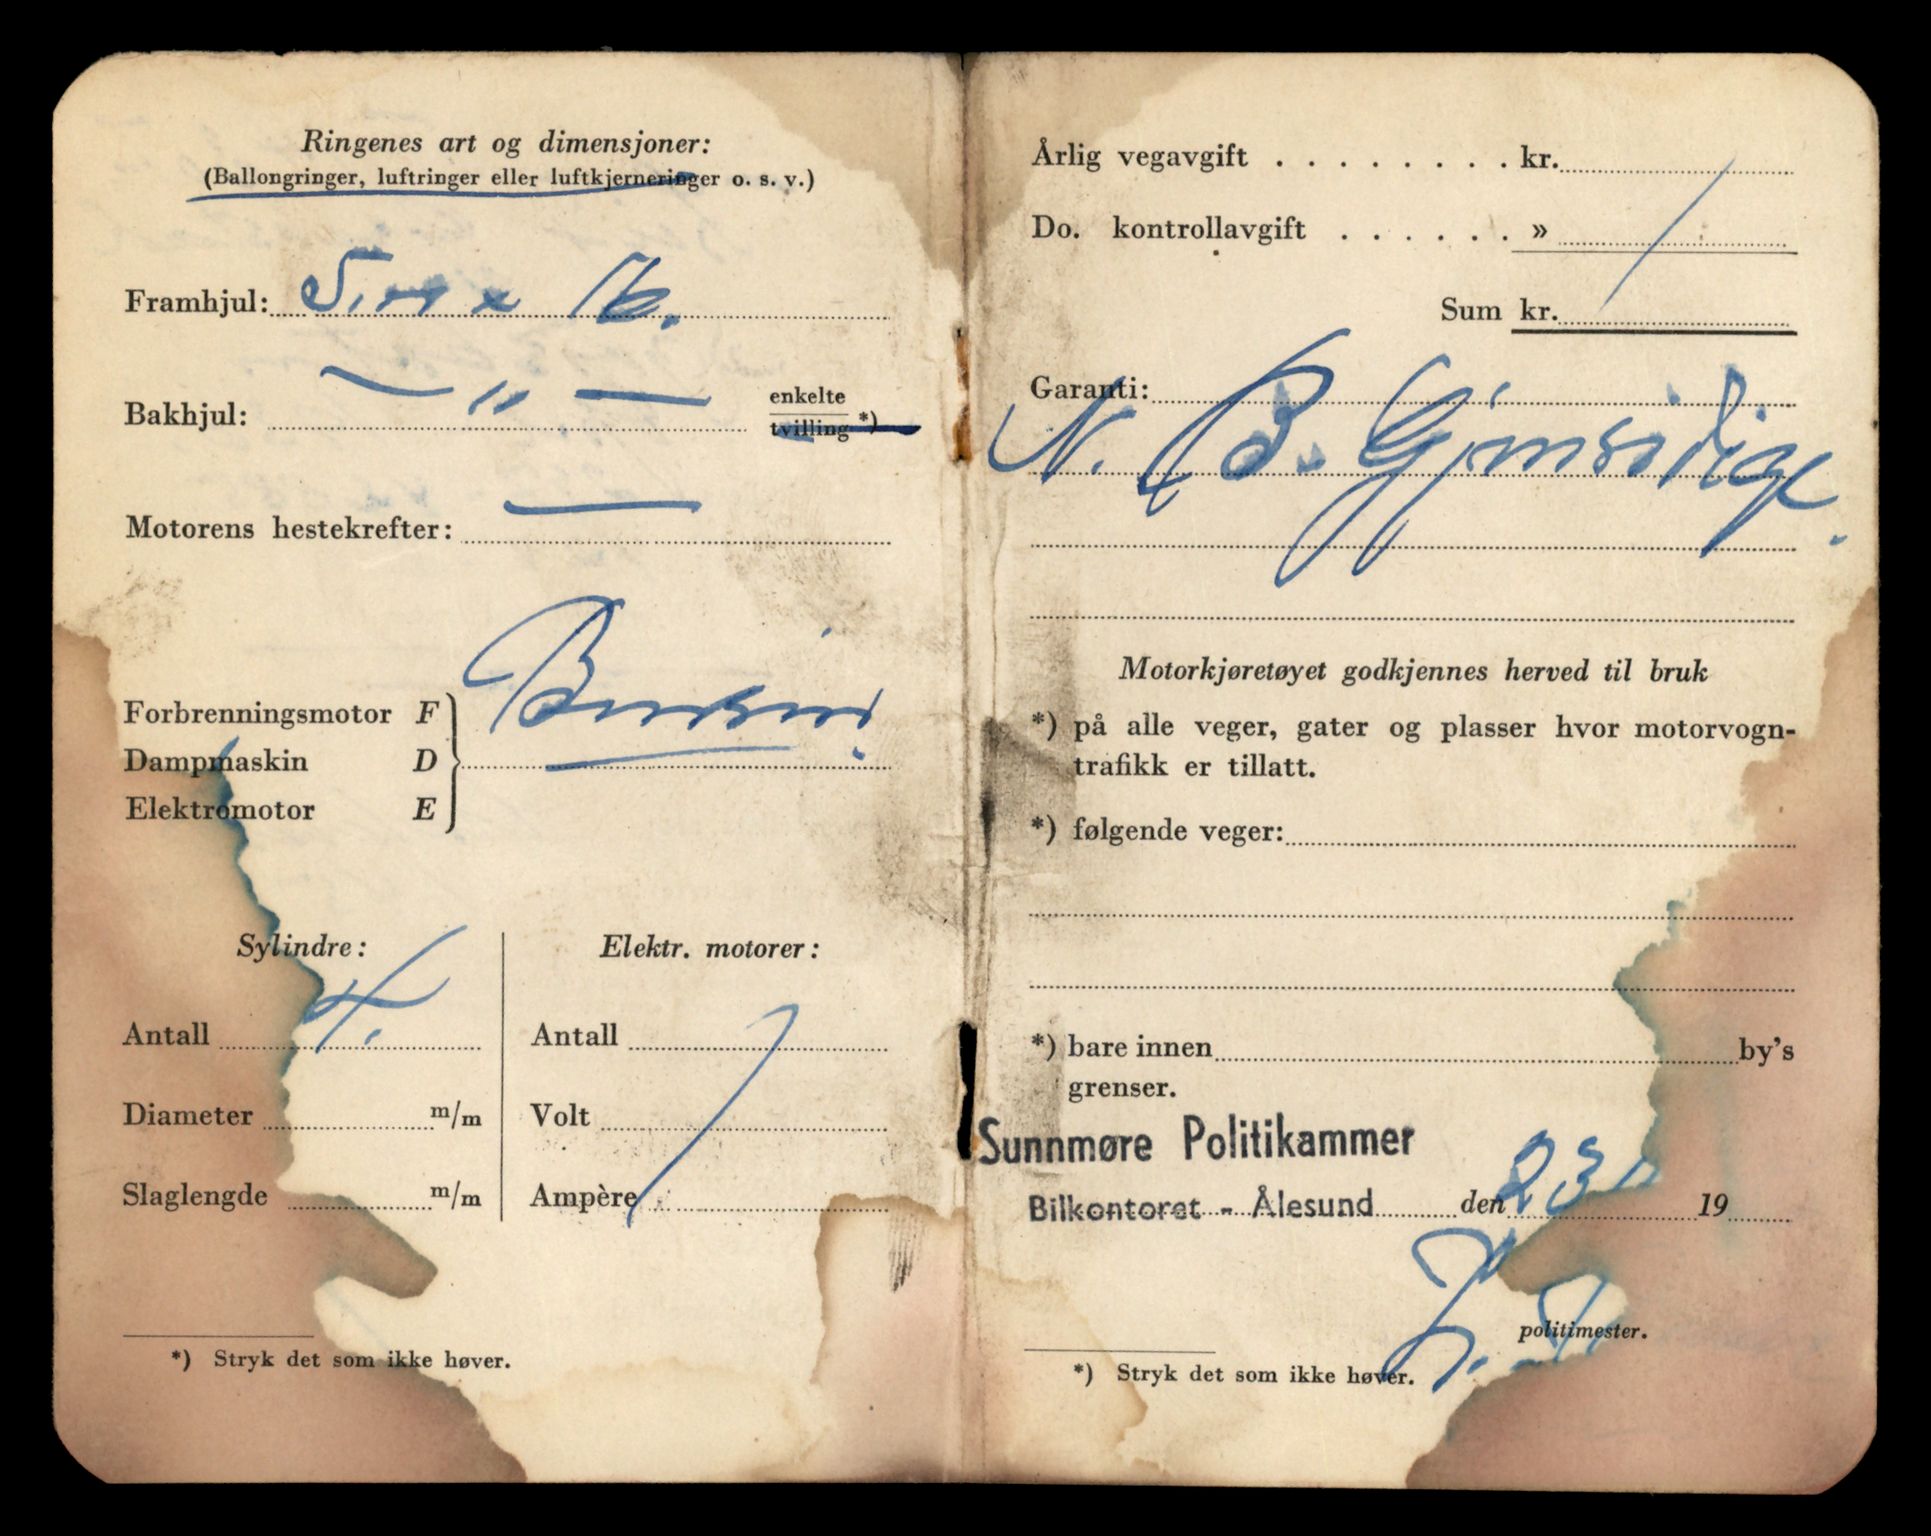 Ringenes art og dimensjoner:
(Ballongringer, luftringer eller luftkjerneringer o. s. v.)
Framhjul: x 16.
Bakhjul: — „ — enkelte
tvilling *)
Motorens hestekrefter: —
Forbrenningsmotor F
Dampmaskin D
Elektromotor E
Bensin
Sylindre:
Antall 4.
Diameter m/m
Slaglengde m/m
Elektr. motorer:
Antall
Volt
Ampère
*) Stryk det som ikke høver.
Årlig vegavgift . . . . . . . . . kr.
Do. kontrollavgift . . . . . . »
Sum kr.
Garanti:
N. B. Gjensidige.
Motorkjøretøyet godkjennes herved til bruk
*) på alle veger, gater og plasser hvor motorvogn-
trafikk er tillatt.
*) følgende veger:
*) bare innen by's
grenser.
Sunnmøre Politikammer
Bilkontoret - Ålesund den 23 19
politimester.
*) Stryk det som ikke høver.